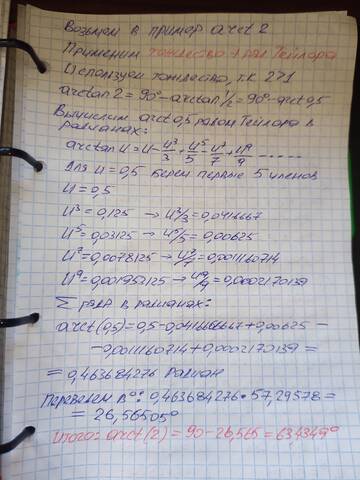 Возьмем в пример arct 2
Применим тождество + ряд Тейлора
Используем тождество, т.к. 2>1
arctan 2 = 90° - arctan 1/2 = 90° - arct 0,5
Вычислим arct 0,5 рядом Тейлора в
радианах:
arctan u = u - u³/3 + u⁵/5 - u⁷/7 + u⁹/9 ......
Для u = 0,5 берем первые 5 членов
u = 0,5
u³ = 0,125 → u³/3 = 0,0416667
u⁵ = 0,03125 → u⁵/5 = 0,00625
u⁷ = 0,0078125 → u⁷/7 = 0,0011160714
u⁹ = 0,001953125 → u⁹/9 = 0,0002170139
Σ ряда в радианах:
arct(0,5) = 0,5 - 0,0416666667 + 0,00625 -
- 0,0011160714 + 0,0002170139 =
= 0,463684276 радиан
Переведем в °: 0,463684276 • 57,29578 =
= 26,56505°
Итого: arct(2) = 90 - 26,565 = 63,4349°